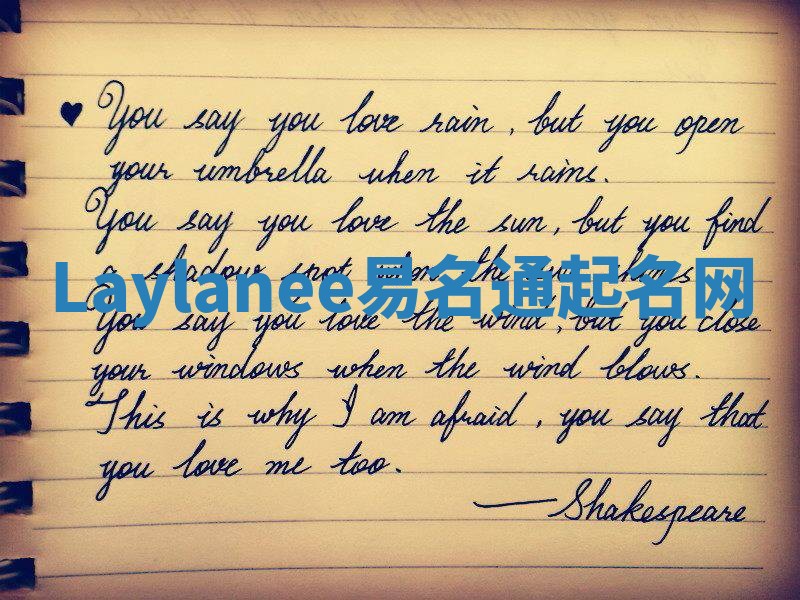 ♥ You say you love rain, but you open
your umbrella when it rains.
You say you love the sun, but you find
a shadow spot when the sun shines
Laylanee易名通起名网
You say you love the wind, but you close
your windows when the wind blows.
This is why I am afraid, you say that
you love me too.
— Shakespeare